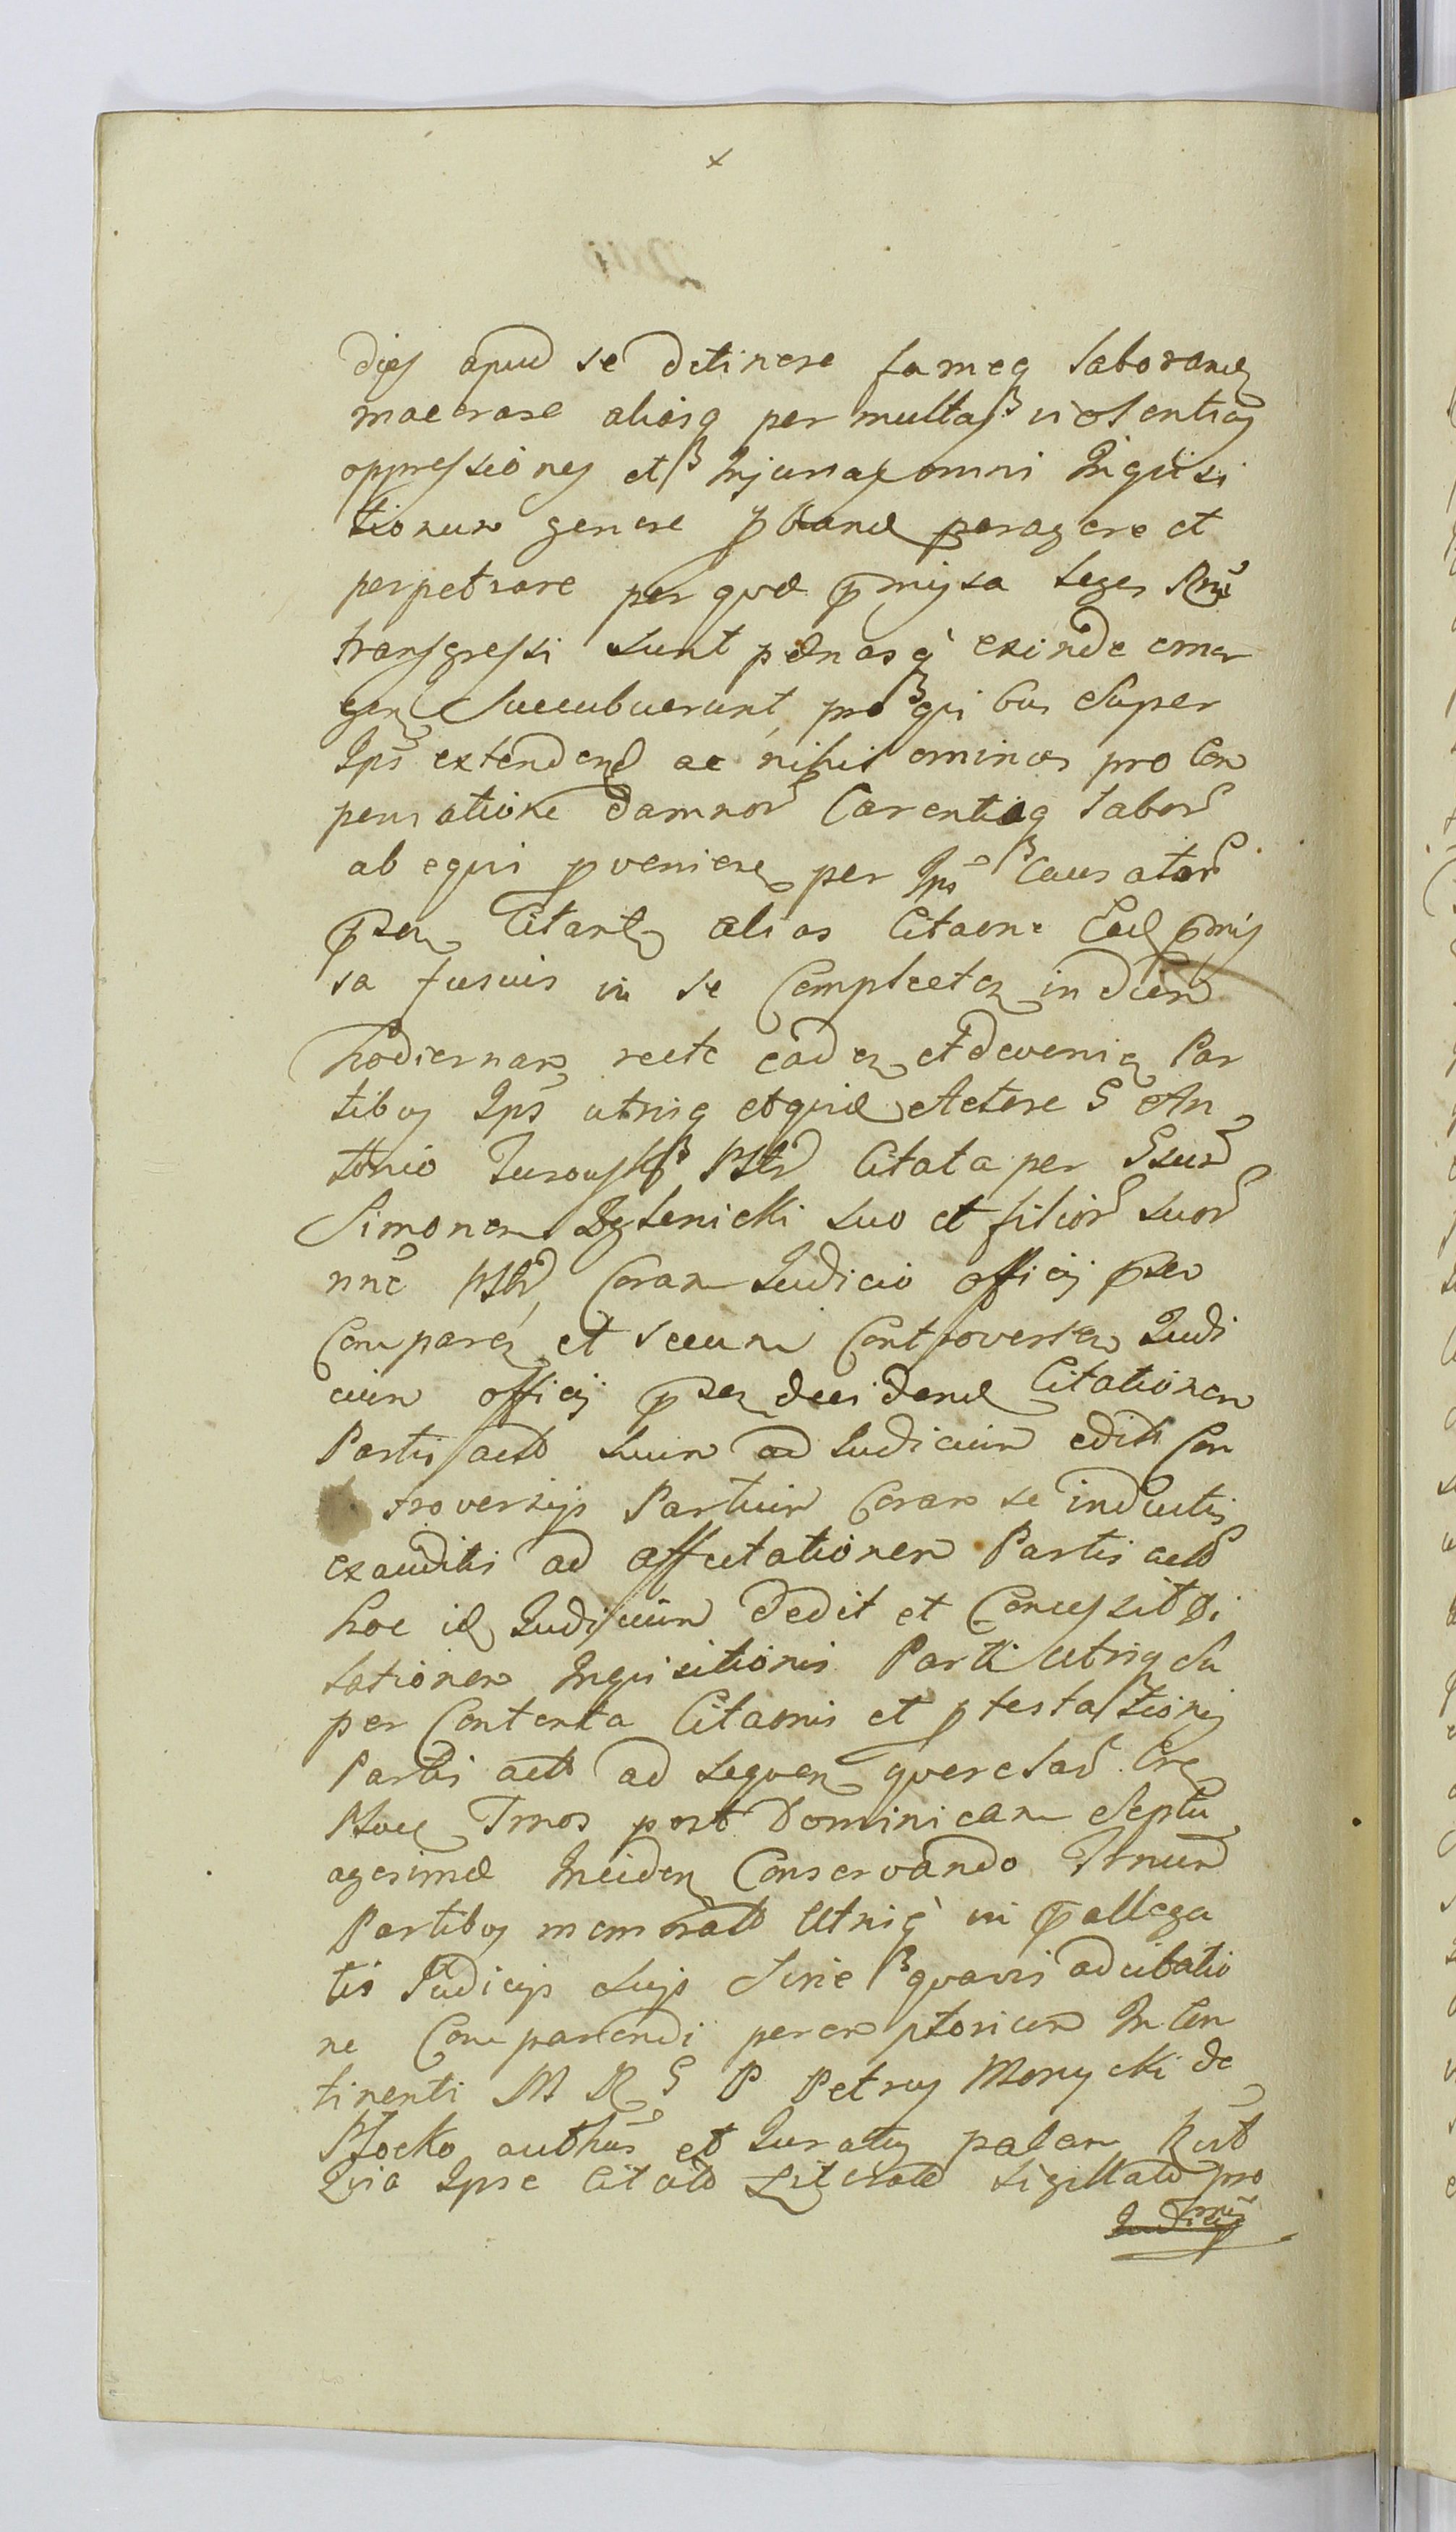 x
dies apud se detinere fameq laborand
macerare aliasq per multas violentias
oppressiones et Injurias omni Inquisi
tionum genere pband peragere et
perpetrare per quæ pmissa leges Rni
transgressi sunt pœnasq exinde emer
gen succubuerunt, pro quibus super
Ips extendend ac nihilominus pro Com
pensatione damnor Carentiaq labor
ab equi pveniere per Ips Causator
psen Citant alias Citaone Ead pmis
sa fusius in se Complecten in diem
hodiernam recte caden et deveni Par
tibus Ips utrisq et quid Actore G An
tonio Turowski Pltr Citata per Gsum
Simonem Bylenicki suo et filior suor
nne Pltr, Coram Judicio officij psen
Comparen et secum Controversan Judi
cium officij psen decidend Citationem
Partis actt suum ad Judicium edit Con
troversijs Partium Coram se inductis
exauditis ad affectationem Partis actt
hoc id Judicium dedit et Concessit Di
lationem Inquisitionis Parti utriq Su
per Contenta Citaonis et ptestationis
Partis actt ad sequen querelar Cres
Ploce Trnos post Dominicam Septu
agesimæ Inciden Conservando Trnum
Partibus memoratt Utrisq in pallega
tis Judicijs suis Sine quavis adcitatio
ne Comparendi peremptorium In Con
tinenti M R G P Petrus Morzycki de
Plocko authus et Juratus palam Reit
Quia Ipse Citatt Literatt sigillatt pro